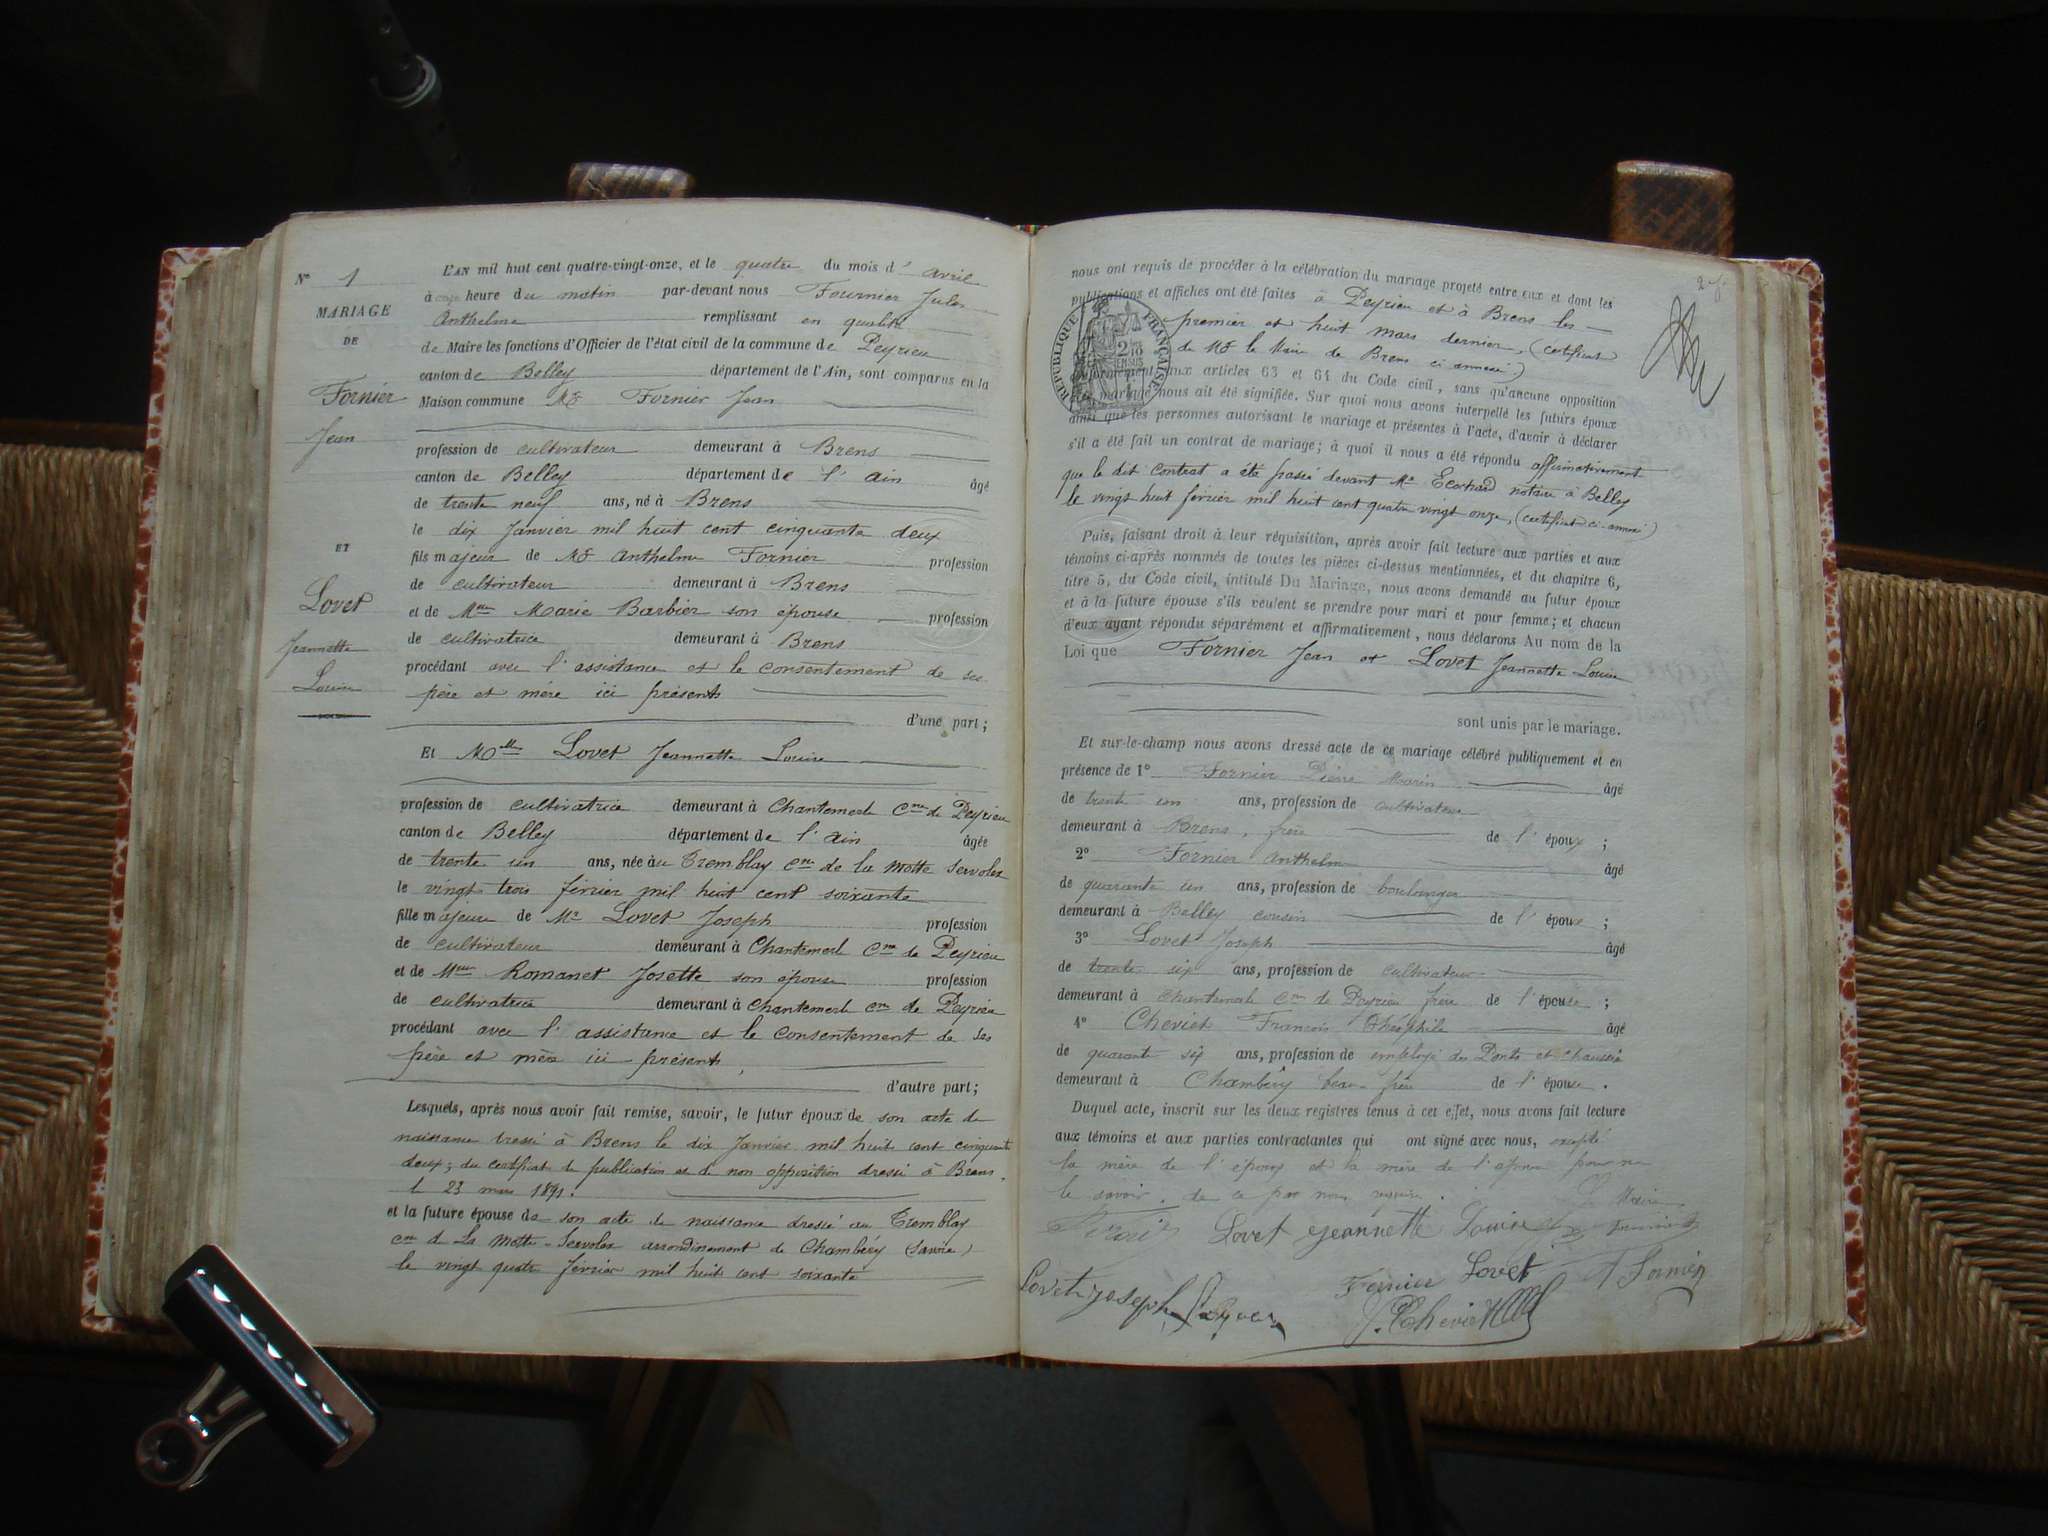 N° 1
MARIAGE
DE
Fornier
Jean
ET
Lovet
Jeannette
Louise
L'AN mil huit cent quatre-vingt-onze, et le quatre du mois d'avril
à heure du matin par-devant nous Fournier Jules
Anthelme remplissant en qualité
de Maire les fonctions d'Officier de l'état civil de la commune de Peyrieu
canton de Belley département de l'Ain, sont comparus en la
Maison commune Mr Fornier Jean
profession de cultivateur demeurant à Brens
canton de Belley département de l'ain âgé
de trente neuf ans, né à Brens
le dix Janvier mil huit cent cinquante deux
fils majeur de Mr Anthelme Fornier profession
de cultivateur demeurant à Brens
et de Mme Marie Barbier son épouse profession
de cultivatrice demeurant à Brens
procédant avec l'assistance et le consentement de ses
père et mère ici présents
d'une part;
Et Mlle Lovet Jeannette Louise
profession de cultivatrice demeurant à Chantemerle Cne de Peyrieu
canton de Belley département de l'ain âgée
de trente un ans, née au Tremblay Cne de la Motte Servolex
le vingt trois février mil huit cent soixante
fille majeure de Mr Lovet Joseph profession
de cultivateur demeurant à Chantemerle Cne de Peyrieu
et de Mme Romanet Josette son épouse profession
de cultivatrice demeurant à Chantemerle Cne de Peyrieu
procédant avec l'assistance et le consentement de ses
père et mère ici présents,
d'autre part;
Lesquels, après nous avoir fait remise, savoir, le futur époux de son acte de
naissance dressé à Brens le dix Janvier mil huit cent cinquante
deux; du certificat de publication et de non opposition dressé à Brens
le 23 mars 1891.
et la future épouse de son acte de naissance dressé au Tremblay
Cne de La Motte-Servolex arrondissement de Chambéry (Savoie)
le vingt quatre février mil huit cent soixante
nous ont requis de procéder à la célébration du mariage projeté entre eux et dont les
publications et affiches ont été faites à Peyrieu et à Brens les
premier et huit mars dernier, (certificat
de Mr le Maire de Brens ci annexé)
RÉPUBLIQUE FRANÇAISE
conformément aux articles 63 et 64 du Code civil, sans qu'aucune opposition
au mariage nous ait été signifiée. Sur quoi nous avons interpellé les futurs époux
ainsi que les personnes autorisant le mariage et présentes à l'acte, d'avoir à déclarer
s'il a été fait un contrat de mariage; à quoi il nous a été répondu affirmativement
que le dit contrat a été passé devant Me Ecochard notaire à Belley
le vingt huit février mil huit cent quatre vingt onze, (certificat ci-annexé)
Puis, faisant droit à leur réquisition, après avoir fait lecture aux parties et aux
témoins ci-après nommés de toutes les pièces ci-dessus mentionnées, et du chapitre 6,
titre 5, du Code civil, intitulé Du Mariage, nous avons demandé au futur époux
et à la future épouse s'ils veulent se prendre pour mari et pour femme; et chacun
d'eux ayant répondu séparément et affirmativement, nous déclarons Au nom de la
Loi que Fornier Jean et Lovet Jeannette Louise
sont unis par le mariage.
Et sur-le-champ nous avons dressé acte de ce mariage célébré publiquement et en
présence de 1° Fornier Pierre Marin âgé
de trente un ans, profession de cultivateur
demeurant à Brens, frère de l'époux;
2° Fornier Anthelme âgé
de quarante un ans, profession de boulanger
demeurant à Belley cousin de l'époux;
3° Lovet Joseph âgé
de trente six ans, profession de cultivateur
demeurant à Chantemerle Cne de Peyrieu frère de l'épouse;
4° Cheviet François Théophile âgé
de quarante six ans, profession de employé des Ponts et chaussées
demeurant à Chambéry beau-frère de l'épouse.
Duquel acte, inscrit sur les deux registres tenus à cet effet, nous avons fait lecture
aux témoins et aux parties contractantes qui ont signé avec nous, excepté
la mère de l'époux et la mère de l'épouse pour ne
le savoir, de ce par nous requises. Le Maire
Lovet Jeannette Louise Fournier
Lovet Joseph Fornier Lovet A Fornier
Cheviet